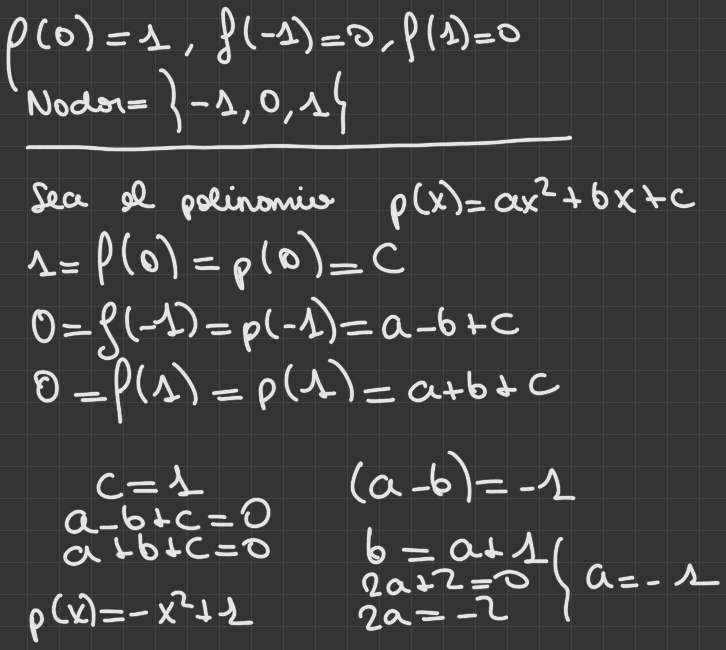 f(0)=1, f(-1)=0, f(1)=0
Nodos= }-1,0,1{
Sea el polinomio p(x)=ax²+bx+c
1=f(0)=p(0)=C
0=f(-1)=p(-1)=a-b+c
0=f(1)=p(1)=a+b+c
c=1
a-b+c=0
a+b+c=0
p(x)=-x²+1
(a-b)=-1
b=a+1
2a+2=0
2a=-2
} a=-1